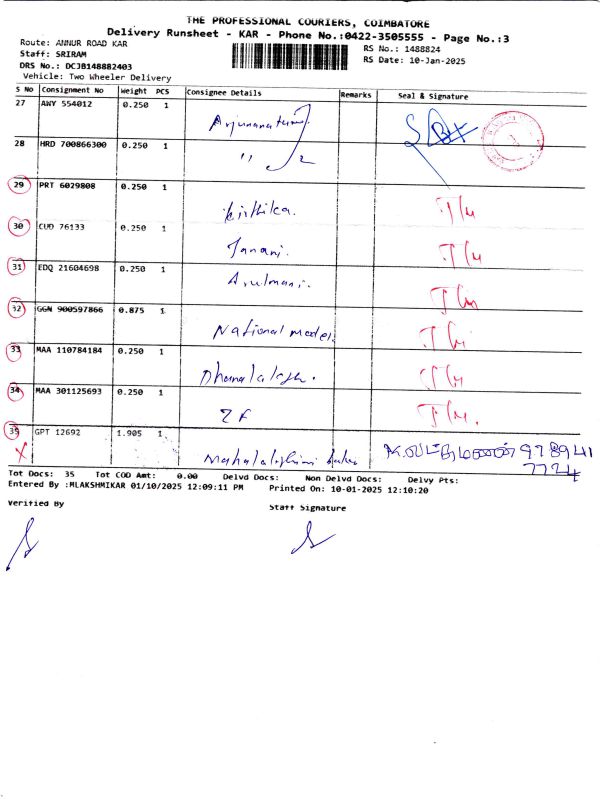 THE PROFESSIONAL COURIERS, COIMBATORE
Delivery Runsheet - KAR - Phone No.:0422-3505555 - Page No.:3
Route: ANNUR ROAD KAR RS No.: 1488824
Staff: SRIRAM RS Date: 10-Jan-2025
DRS No.: DCJB148882403
Vehicle: Two Wheeler Delivery
S No Consignment No Weight PCS Consignee Details Remarks Seal & Signature
27 AWY 554012 0.250 1
28 HRD 700866300 0.250 1 " 2
29 PRT 6029808 0.250 1
Kirthika.
30 CUD 76133 0.250 1
Janani.
31 EDQ 21604698 0.250 1
Arulmani.
32 GGN 900597866 0.875 1
National model.
33 MAA 110784184 0.250 1
34 MAA 301125693 0.250 1
ZF
35 GPT 12692 1.905 1
978941
7724
Tot Docs: 35 Tot COD Amt: 0.00 Delvd Docs: Non Delvd Docs: Delvy Pts:
Entered By :MLAKSHMIKAR 01/10/2025 12:09:11 PM Printed On: 10-01-2025 12:10:20
Verified By Staff Signature